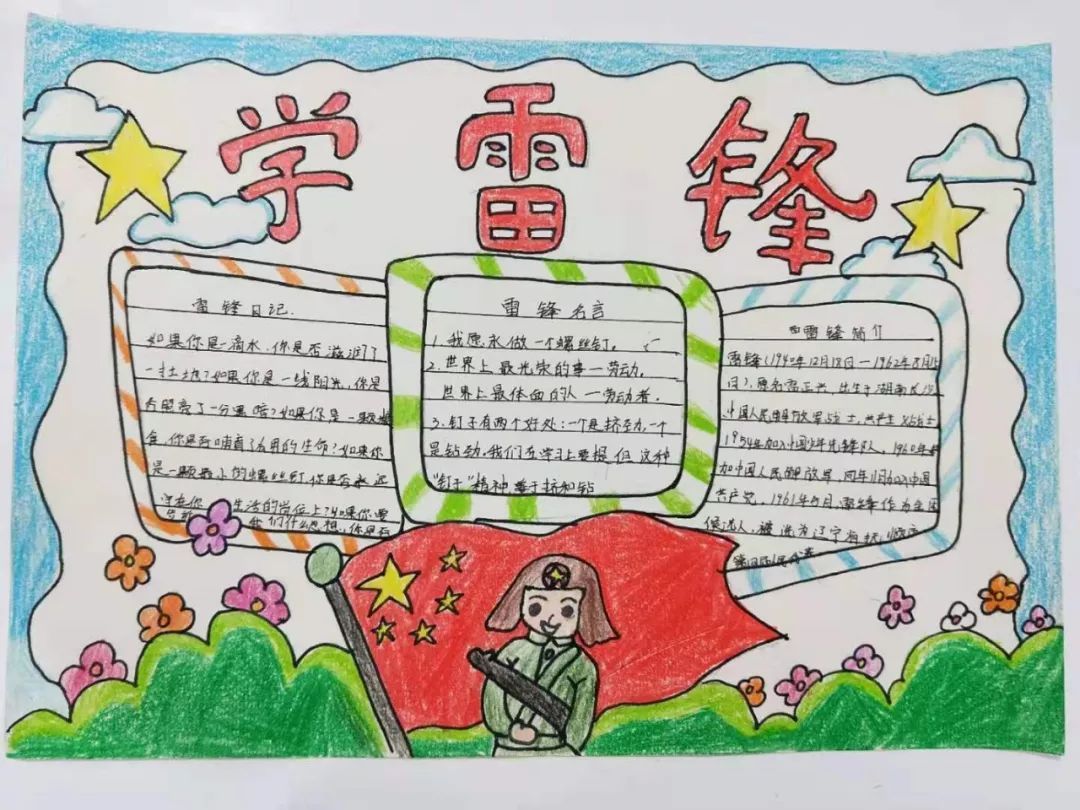 学雷锋
雷锋日记.
如果你是一滴水,你是否滋润了
一寸土地?如果你是一线阳光,你是
否照亮了一分黑暗?如果你是一颗粮
食,你是否哺育了有用的生命?如果你
是一颗最小的螺丝钉,你是否永远
守在你生活的岗位上?如果你要
我们什么思想,你是否
雷锋名言
1.我愿永做一个螺丝钉。
2.世界上最光荣的事一劳动,
世界上最体面的人一劳动者.
3.钉子有两个好处:一个是挤劲,一个
是钻劲,我们在学习上要提倡这种
"钉子"精神,善于挤和钻
雷锋简介
雷锋(1940年12月18日一1962年8月15
日),原名雷正兴,出生于湖南长沙
中国人民解放军战士,共产主义战士
1954年加入中国少年先锋队,1960年参
加中国人民解放军,同年11月加入中国
共产党,1961年5月,雷锋作为
候选人,被选为辽宁省抚顺市
第四届